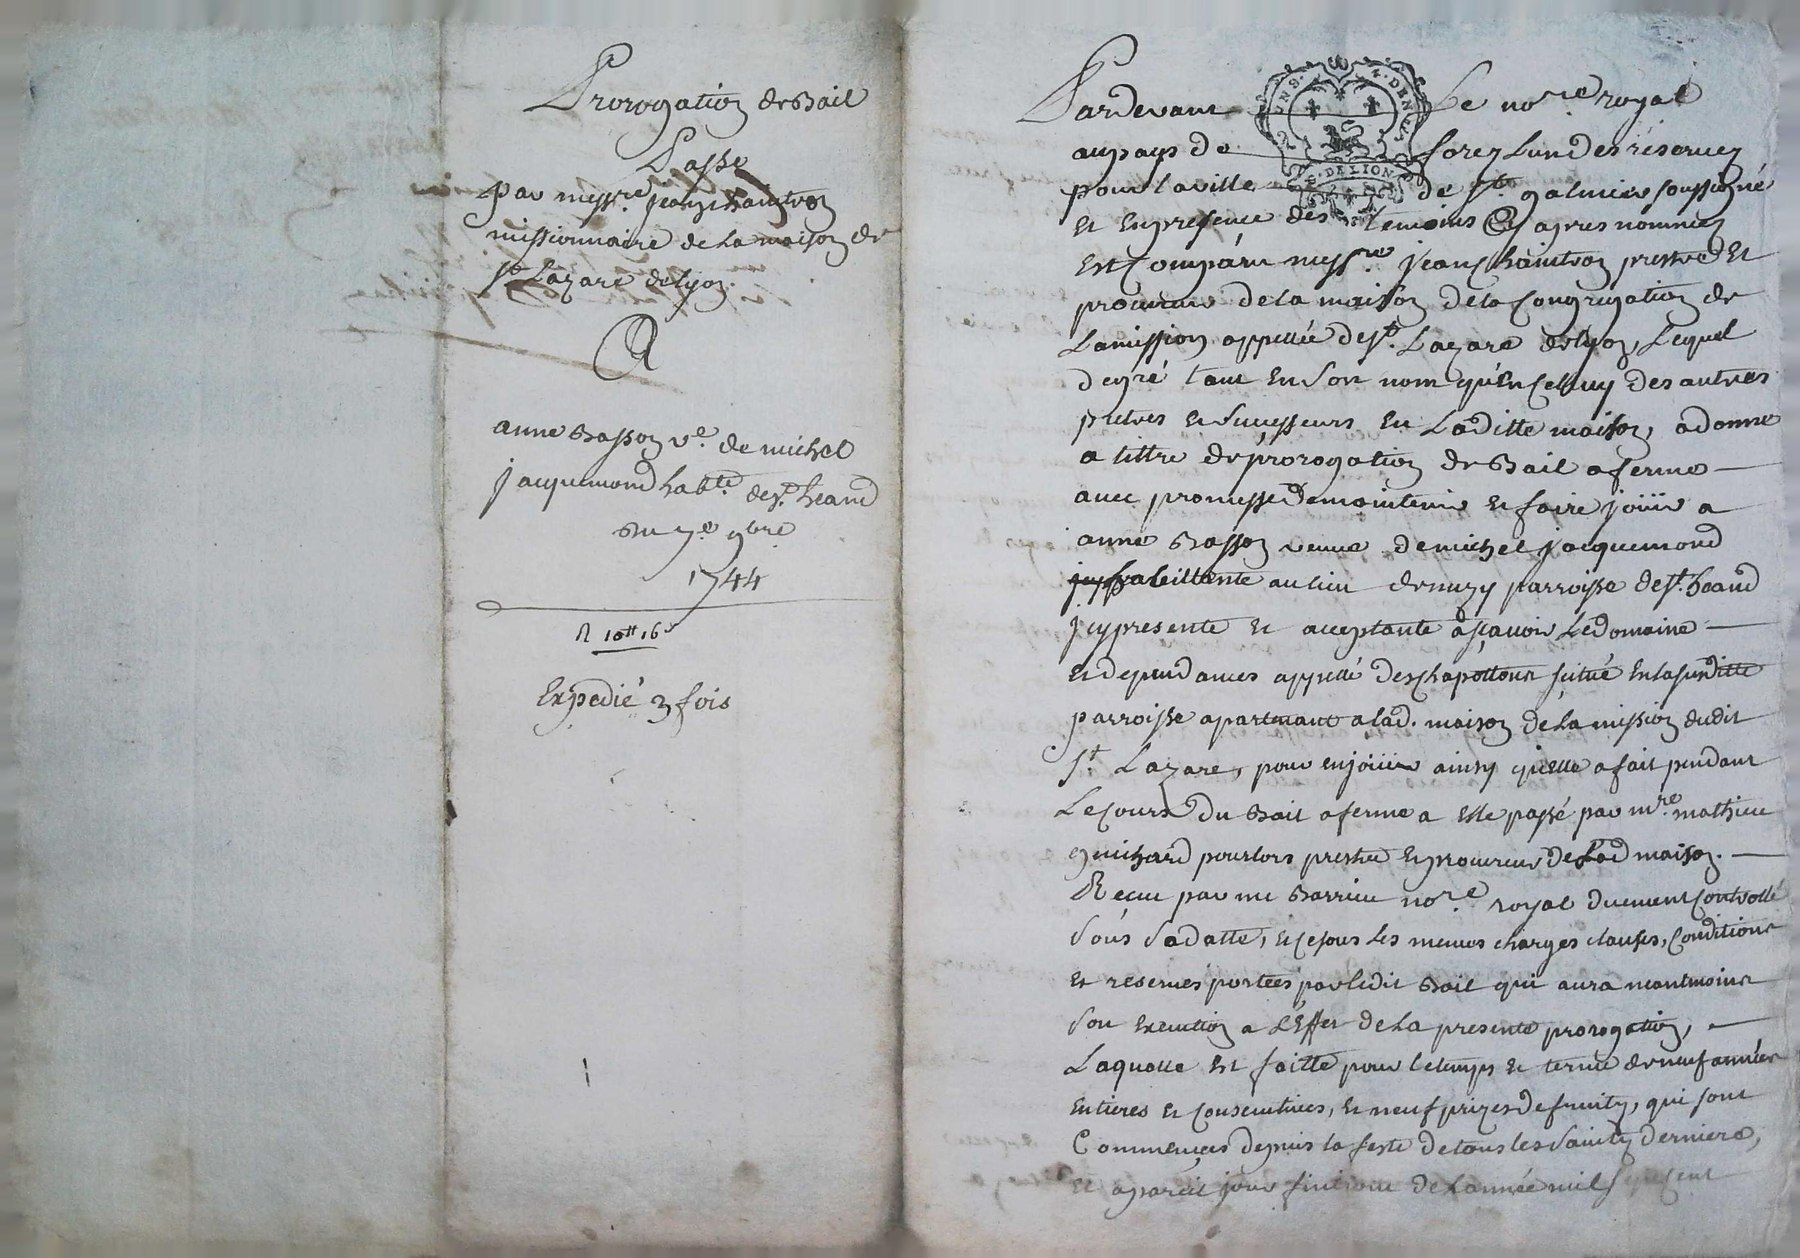 Prorogation de Bail
Passé
par messre. jean chaintron
missionnaire de La maison de
st Lazare de lyon.
A
anne Basson ve. de michel
jacquemond habte. de st. heand
Du 7e. 9bre
1744
R 10tt 16s
Expedié 3 fois
Pardevant Le nore. royal
au pays de forez L'un des réservez
pour la ville de st. galmier soussigné
Et En presence des temoins Cy apres nommez
Est Comparu messre. jean chaintron prestre Et
procureur de la maison de la Congregation de
La mission appellée de st. Lazare de lyon, Lequel
de gré tant En son nom qu'En Celuy des autres
pretres et successeurs En Laditte maison, a donné
a tittre de prorogation de Bail a ferme
avec promesse de maintenir et faire joüir a
anne Basson veuve de michel jacquemond
habittante au lieu de muzy parroisse de st. heand
jcy presente et acceptante asçavoir Le domaine
et dependances appellé des chapottons scitué En la susditte
parroisse apartenant a lad. maison de La mission dudit
st. Lazare, pour en joüir ainsy qu'elle a fait pendant
Le Cours du Bail a ferme a Elle passé par mre. mathieu
guichard pour lors prestre et procureur de Lad maison.
Reçeu par me Barrieu nore. royal duement Controllé
sous sa datte, et ce sous les memes charges clauses, Conditions
et reserves portées par ledit Bail qui aura neantmoins
son Execution a L'Effet de La presente prorogation,
Laquelle Est faitte pour le temps et terme de neuf années
Entieres et Consecutives, et neuf prizes de fruits, qui sont
Commencées depuis la feste de tous les saints derniere,
et a pareil jour finiront de L'année mil sept Cent